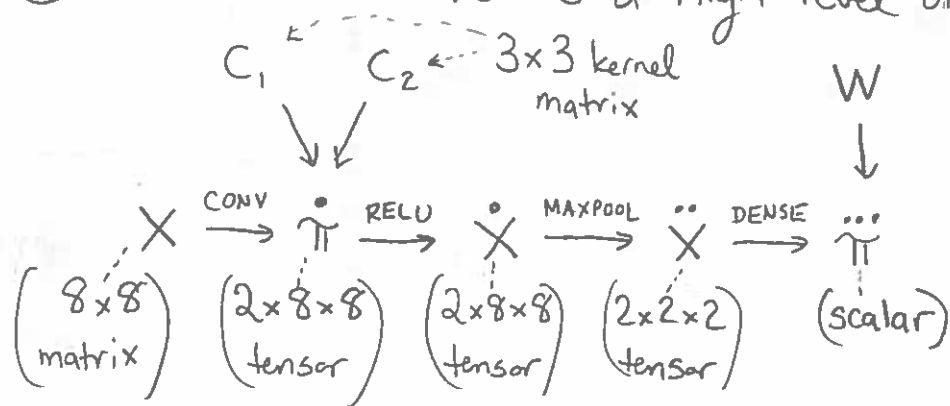 a High level
C₁ C₂ 3×3 kernel
matrix
W
X CONV π̇ RELU Ẋ MAXPOOL Ẍ DENSE π⃛
(8×8 matrix) (2×8×8 tensor) (2×8×8 tensor) (2×2×2 tensor) (scalar)